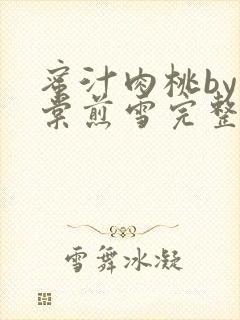 蜜汁肉桃by
棠煎雪完整
雪舞冰凝